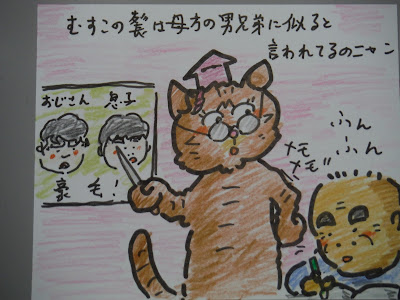 むすこの髪は母方の男兄弟に似ると
言われてるのニャン
おじさん 息子
豪毛!
メモ
メモ
ふん
ふん